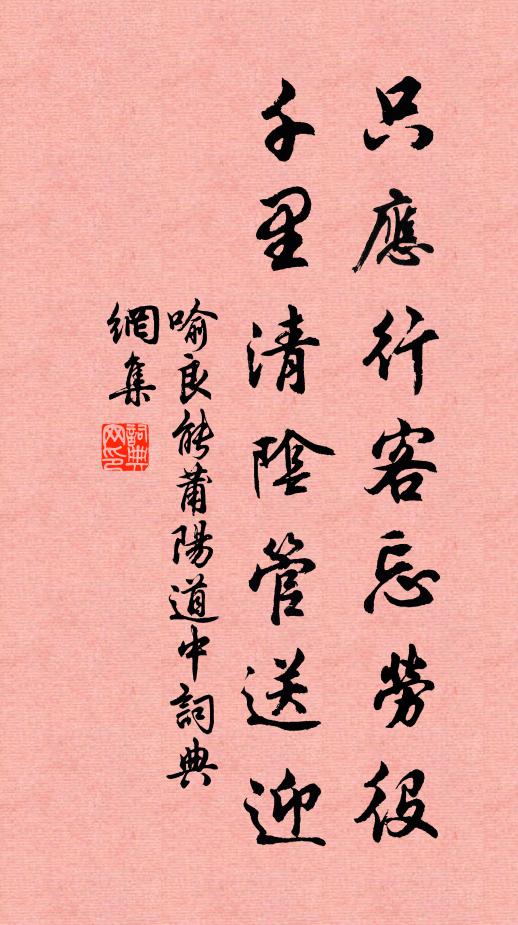 只應行客忘勞役
千里清陰管送迎
喻良能莆陽道中詞典
網集
詞典網印